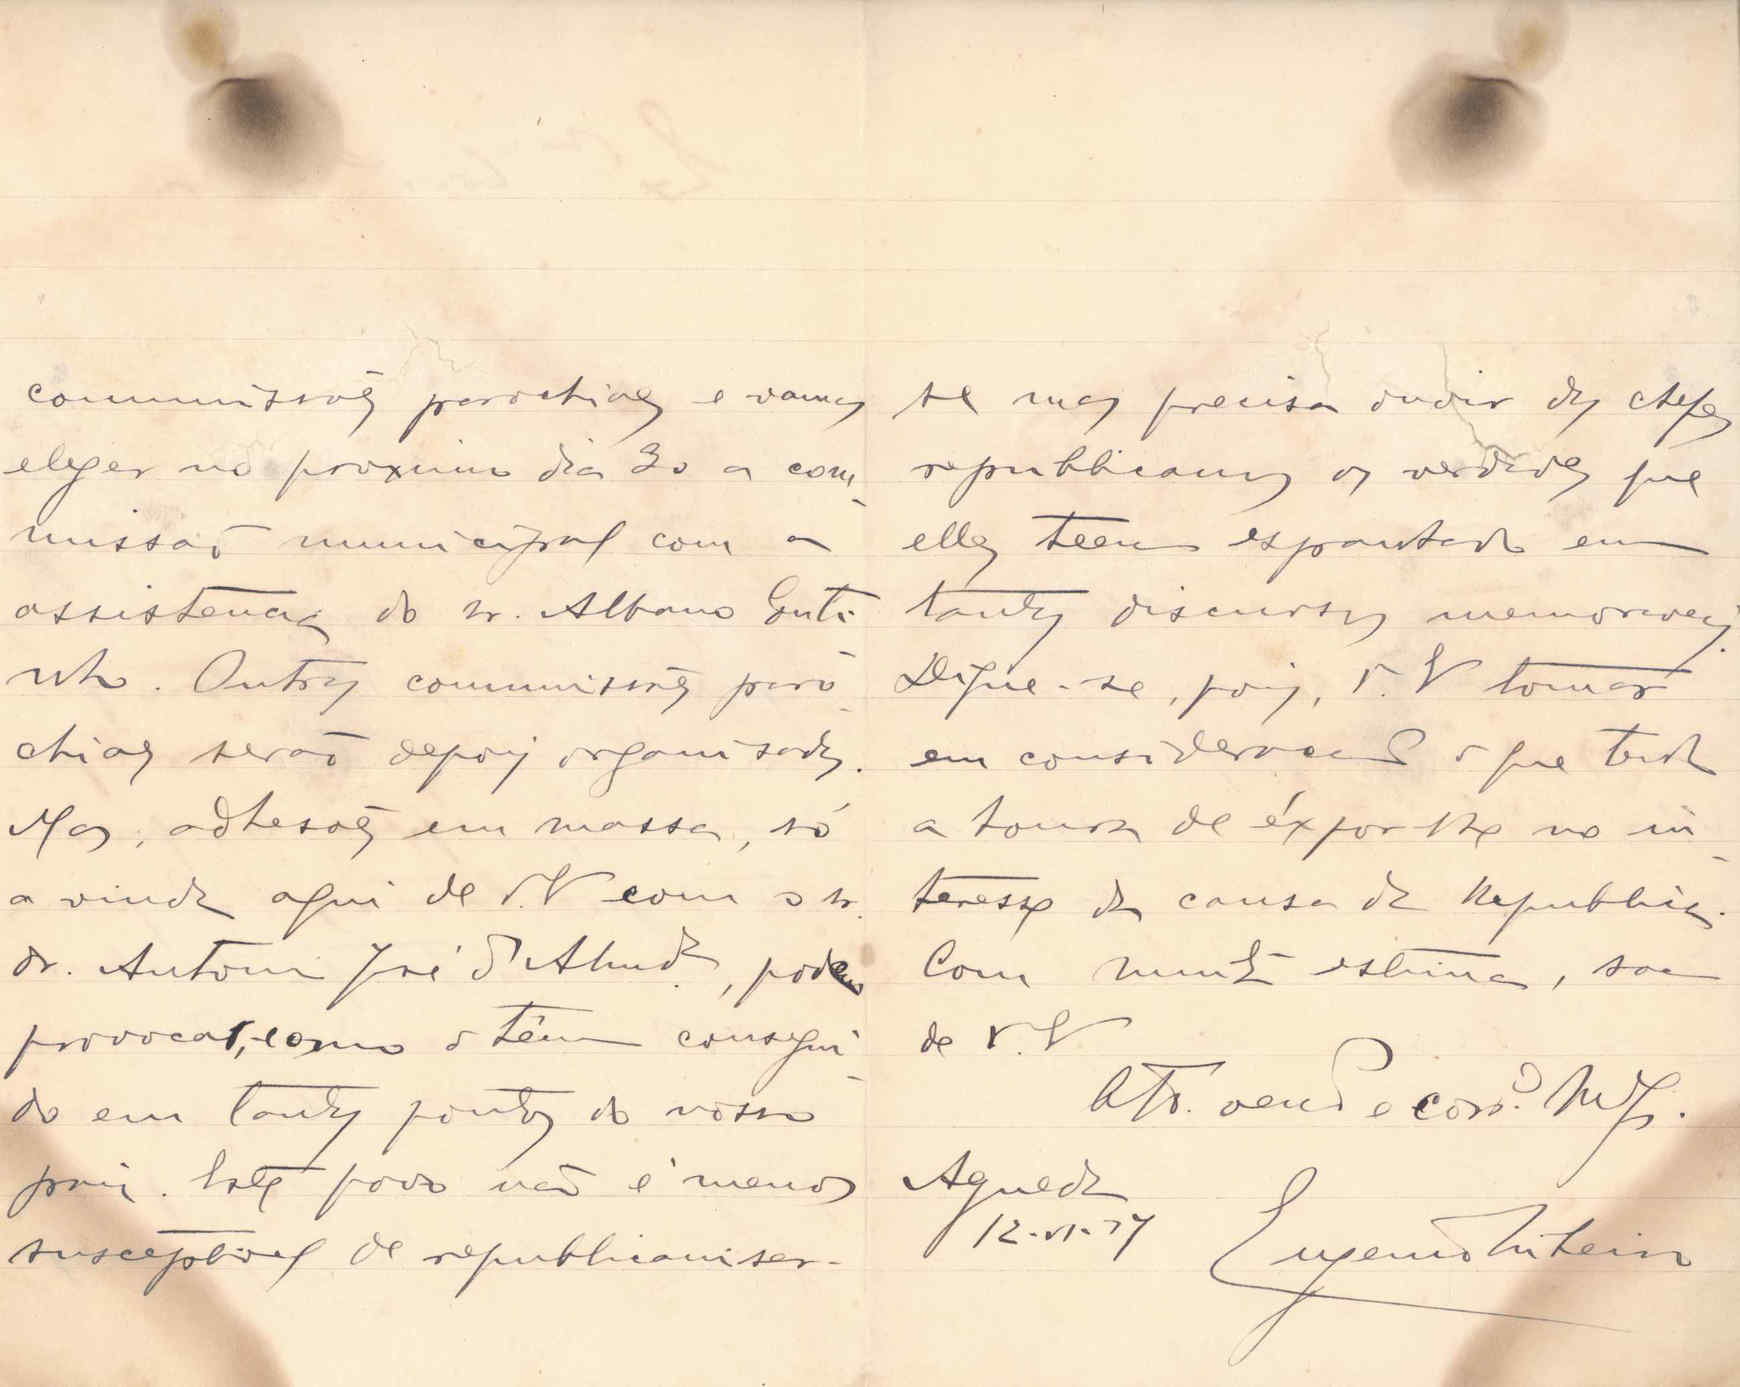 commissões parochiaes e vamos
eleger no proximo dia 30 a com-
missão municipal com a
assistencia do sr. Albano Couti
nho. Outras commissões paro-
chiaes serão depois organisadas.
Mas, adhesões em massa, só
a vinda aqui de V. com o sr.
dr. Antonio José d'Almeida, podem
provocar, como o têm consegui-
do em tantos pontos do nosso
paiz. Este povo não é menos
susceptivel de republicanisar-
se mas precisa ouvir dos chefes
republicanos as verdades que
elles teem espantado em
tantos discursos memoraveis.
Digne-se, pois, V. tomar
em consideração o que tenho
a honra de expor-lhe no in-
teresse da causa da Republica.
Com muita estima, sou
de V.
Att. ven. e cor.
Agueda
12-
Eugenio Ribeiro